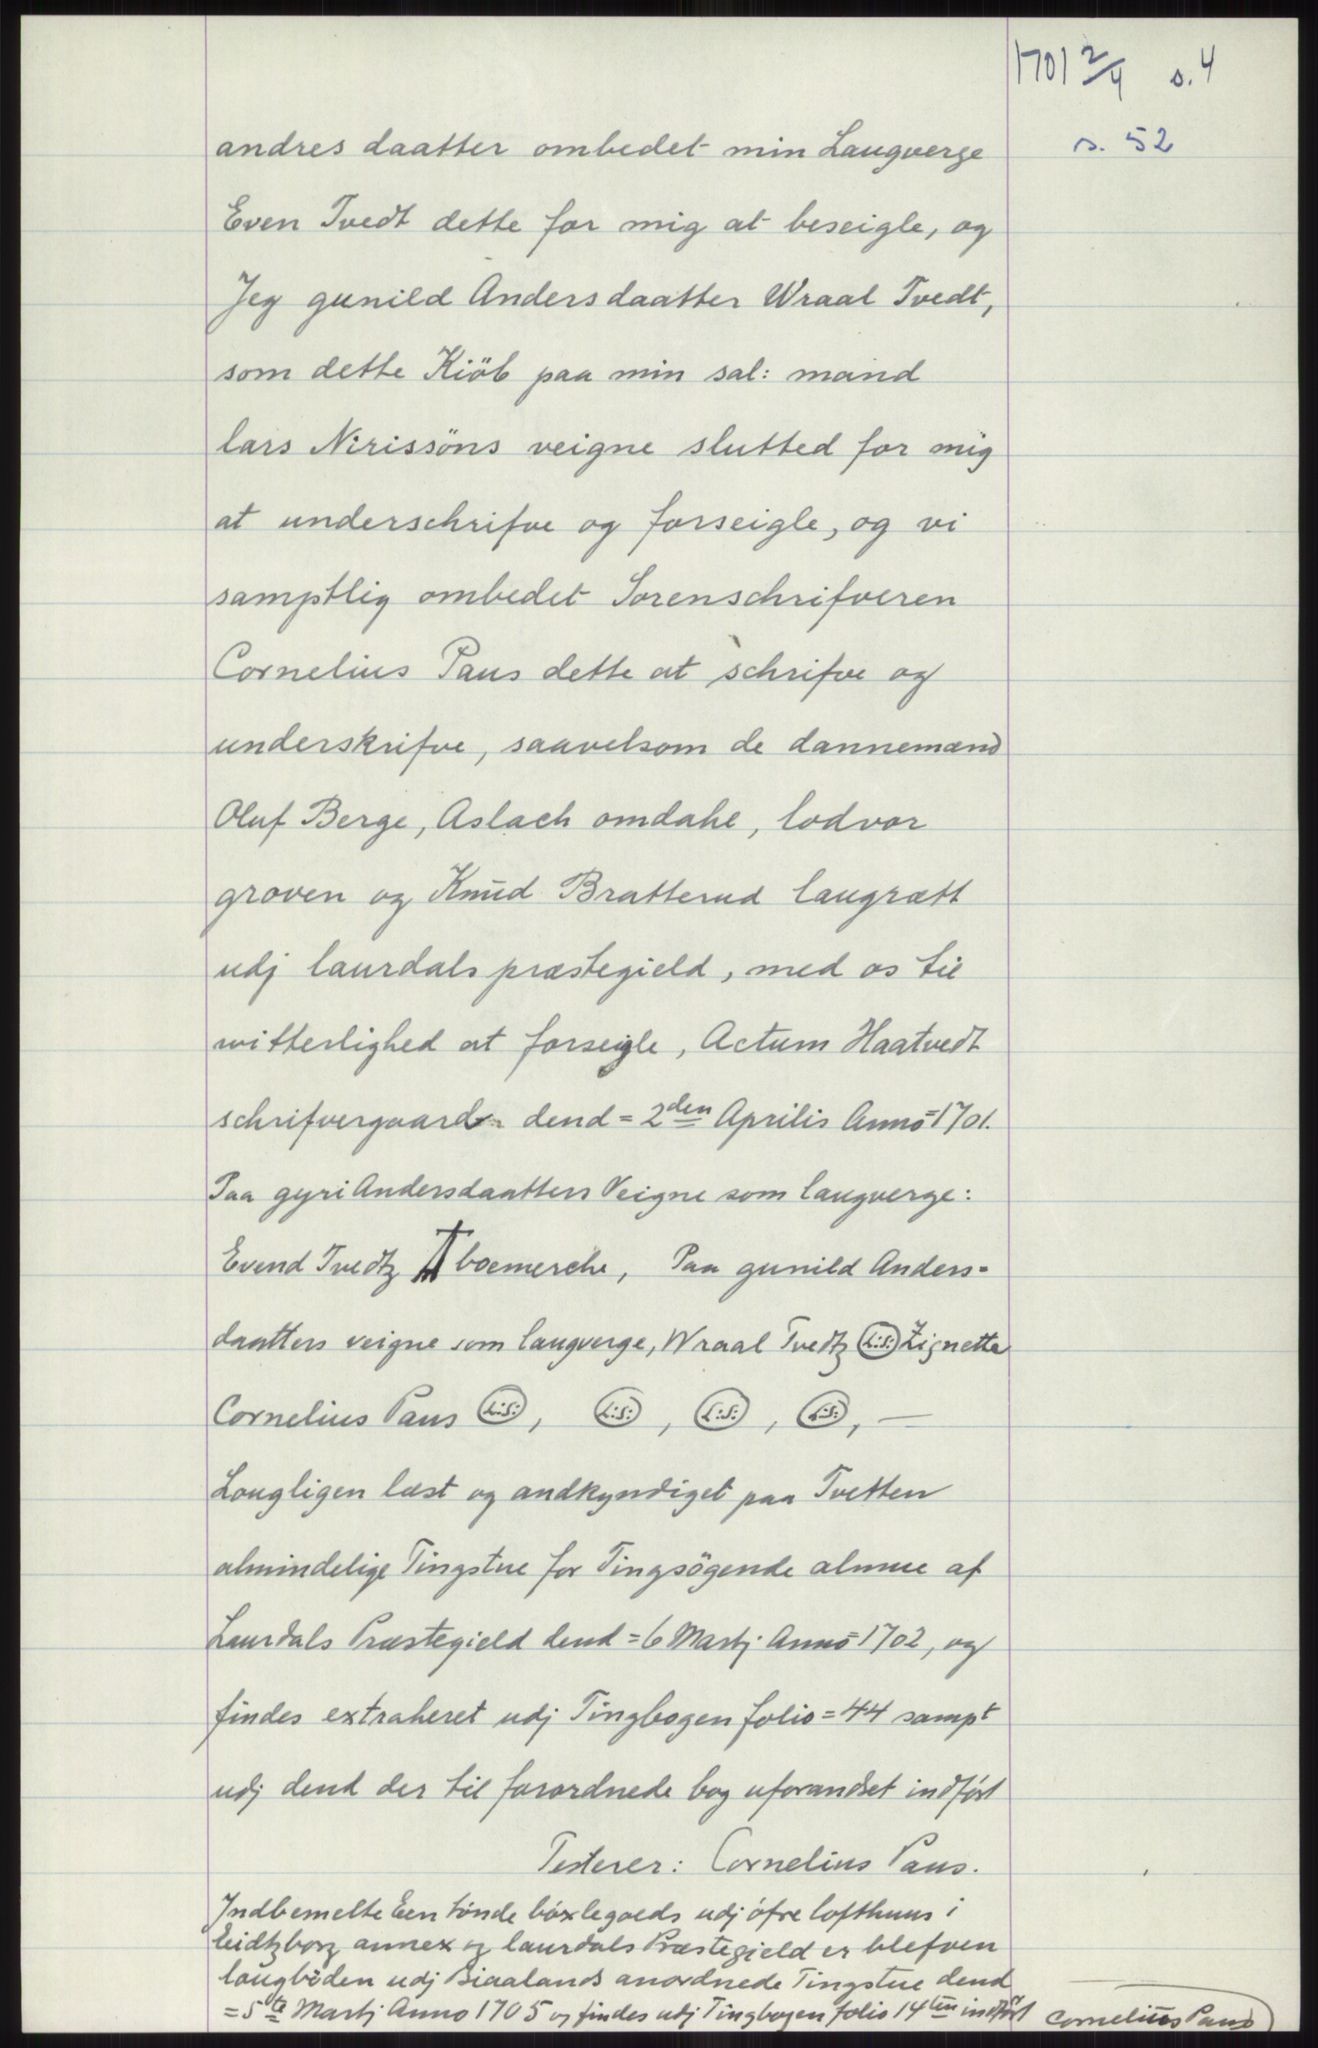 1701 2/4 s. 4
s. 52
andres daatter ombedet min Laugverge
Even Tvedt dette for mig at beseigle, og
Jeg gunild Andersdaatter Wraal Tvedt,
som dette Kiöb paa min sal: mand
lars Nirissöns veigne slutted for mig
at underschrifve og forseigle, og vi
samptlig ombedet Sorenschrifveren
Cornelius Paus dette at schrifve og
underskrifve, saavelsom de dannemænd
Oluf Berge, Aslach omdahl, lodvor
groven og Knud Bratterud laugrætt
udj laurdals præstegield, med os til
witterlighed at forseigle, Actum Haatvedt
schrifvergaard dend = 2den Aprilis Anno = 1701.
Paa gyri Andersdaatters Veigne som laugverge:
Evend Tvedtz boemerche, Paa gunild Anders-
daatters veigne som laugverge, Wraal Tvedtz L:S: Zignette
Cornelius Paus L:S:, L:S:, L:S:, L:S:, —
Lougligen læst og andkyndiget paa Tvetten
almindelige Tingstue for Tingsögende almue af
Laurdals Præstegield dend = 6 Martj Anno = 1702, og
findes extraheret udj Tingbogen folio = 44 sampt
udj dend der til forordnede bog uforandret indført
Testerer: Cornelius Paus.
Indbemelte Een tönde böxlegoeds udj öfre lofthuus i
leidtzborg annex og laurdals Præstegield er blefven
laugböden udj Biaalands anordnede Tingstue dend
= 5te Martj Anno 1705 og findes udj Tingbogen folio 14ten indført
Cornelius Paus